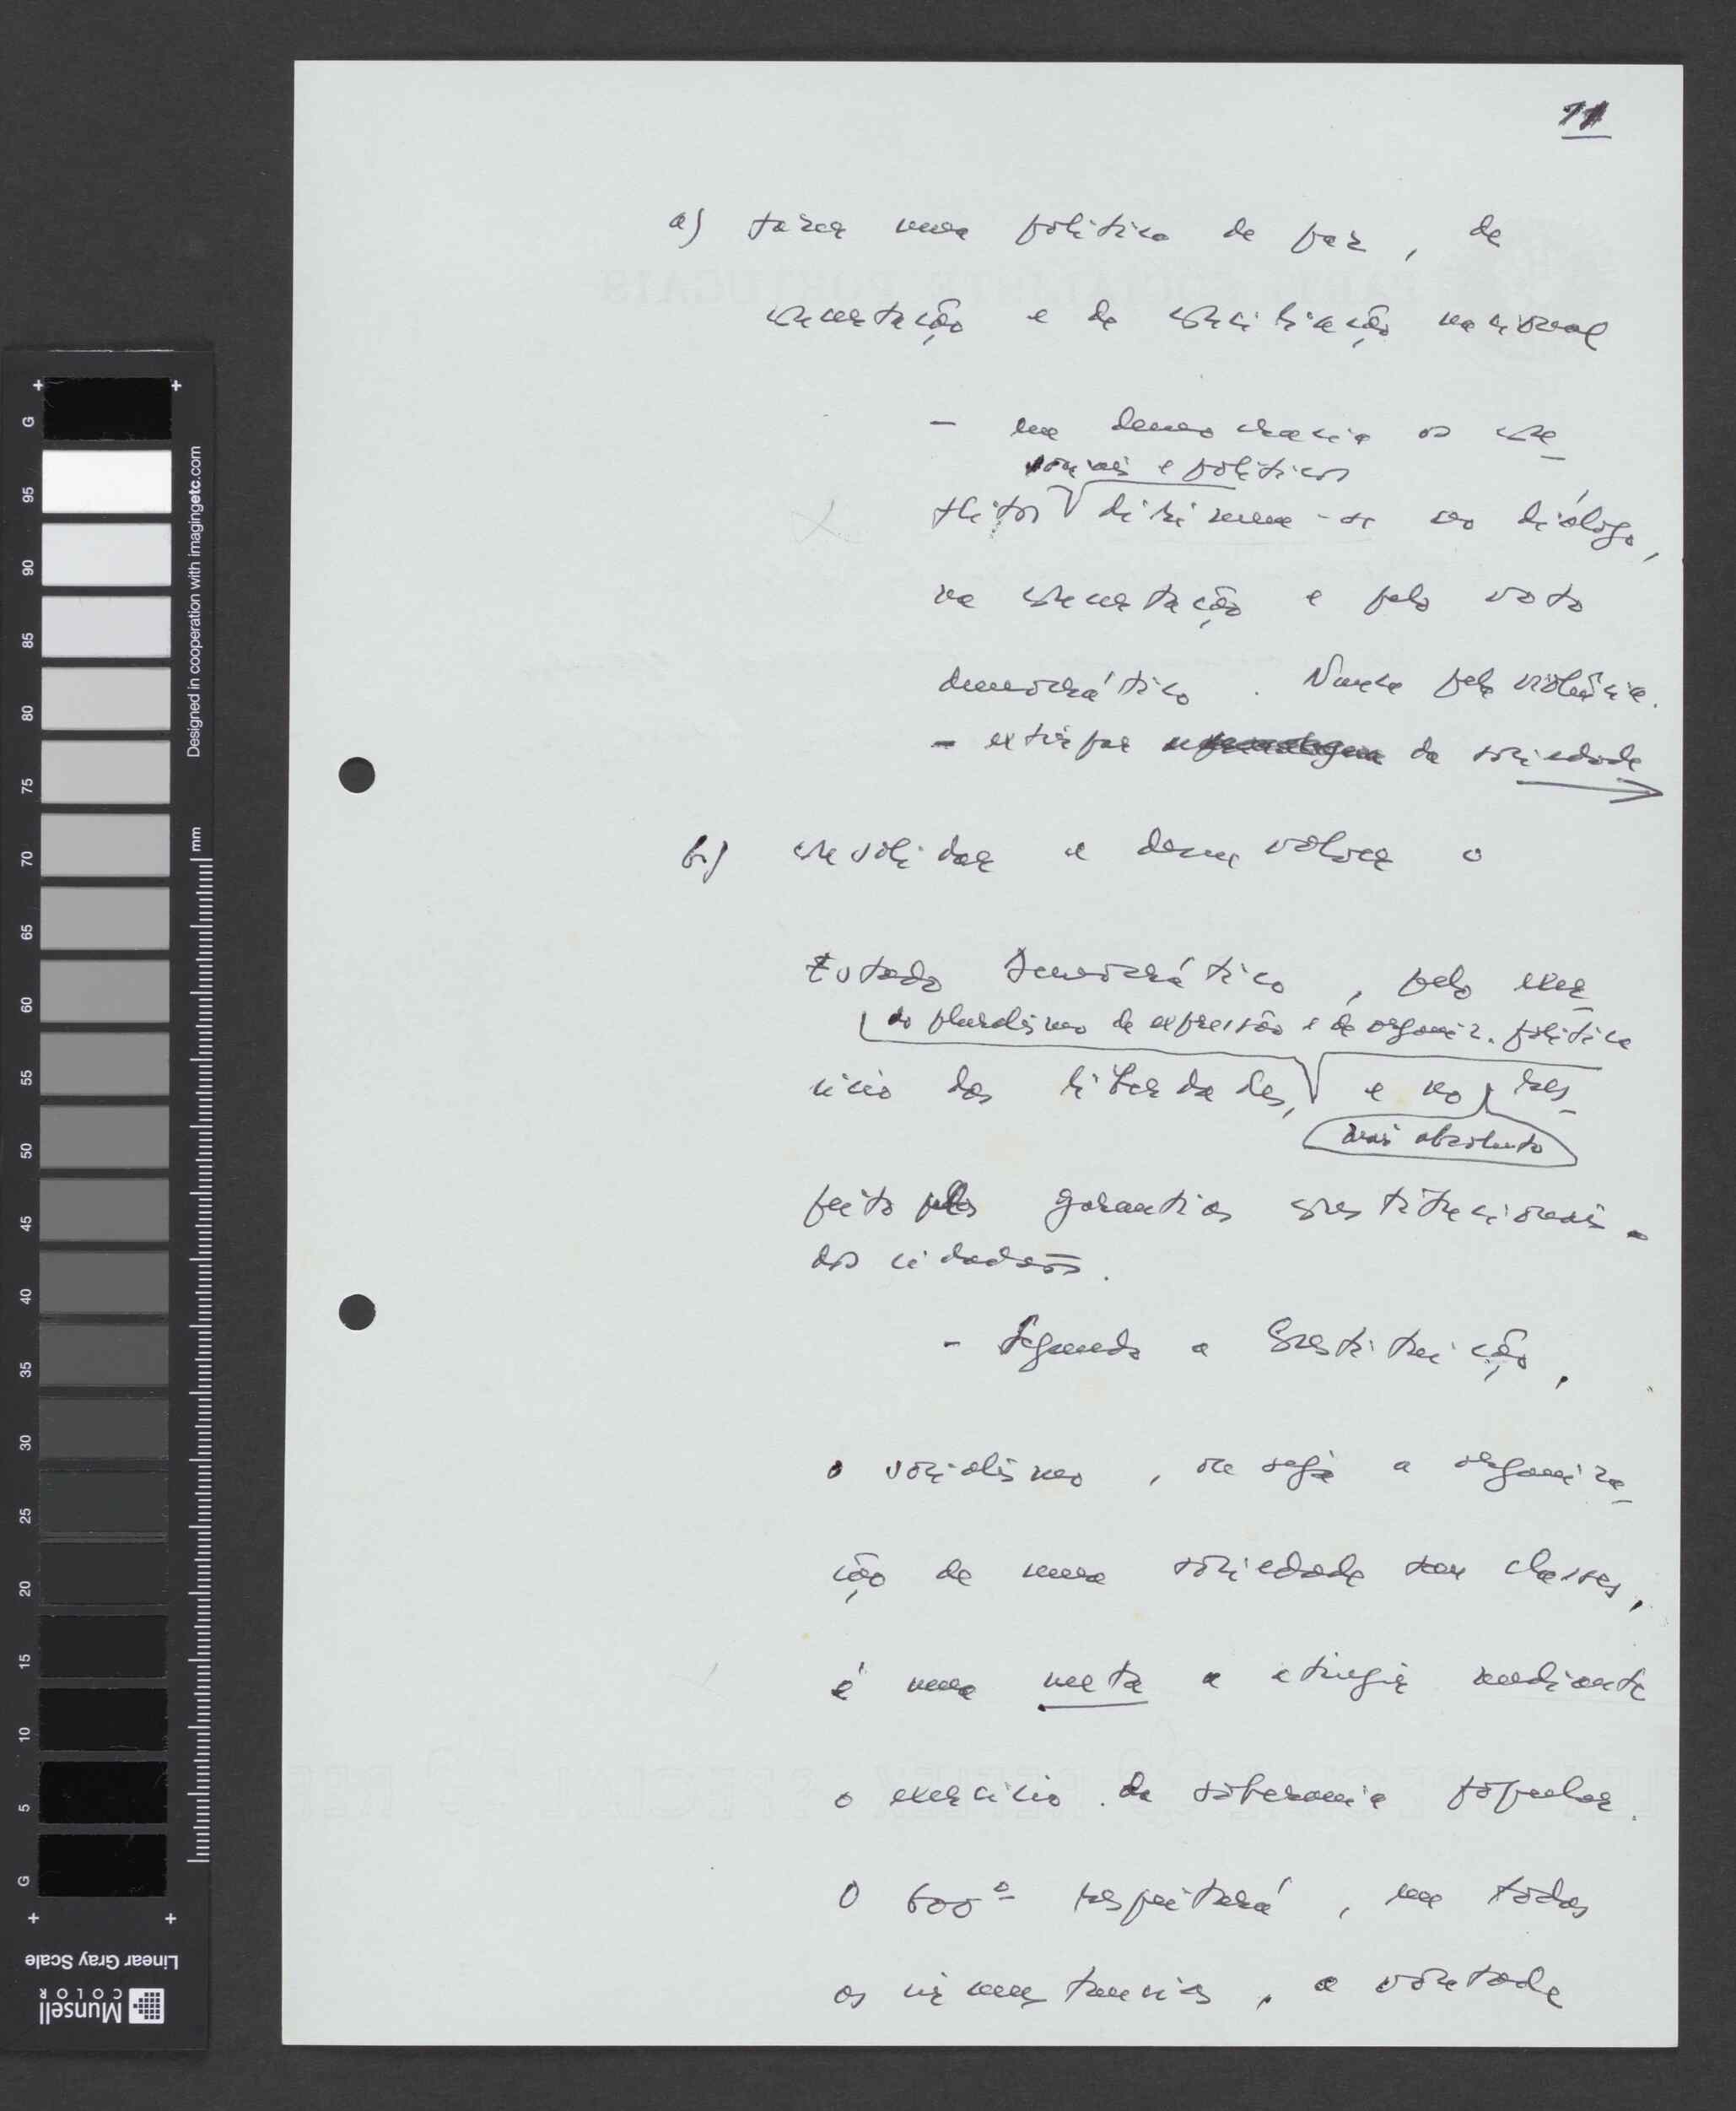 11
a) fazer uma política de paz, de
concertação e de conciliação nacional
- em democracia os con-
sociais e políticos
flitos dirimem-se no diálogo,
na concertação e pelo voto
democrático. Nunca pela violência.
- extirpar da sociedade
b) consolidar e desenvolver o
Estado Democrático, pelo exer-
do pluralismo de expressão e de organiz. política
cício das liberdades, e no res-
mais absoluto
peito pelas garantias constitucionais
dos cidadãos.
- Segundo a Constituição,
o socialismo, ou seja a organiza-
ção de uma sociedade sem classes,
é uma meta a atingir mediante
o exercício da soberania popular.
O Govº respeitará, em todas
as circunstancias, a vontade
G
95
90
85
80
75
70
65
60
55
50
45
40
35
30
25
20
15
10
5
G
mm
Designed in cooperation with imagingetc.com
Linear Gray Scale
Munsell
COLOR
PARTI SOCIALISTE PORTUGAIS